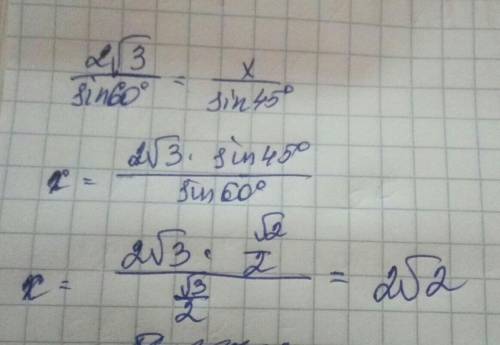 2√3/sin60° = x/sin45°
x = 2√3 · sin45°/sin60°
x = (2√3 · √2/2)/(√3/2) = 2√2